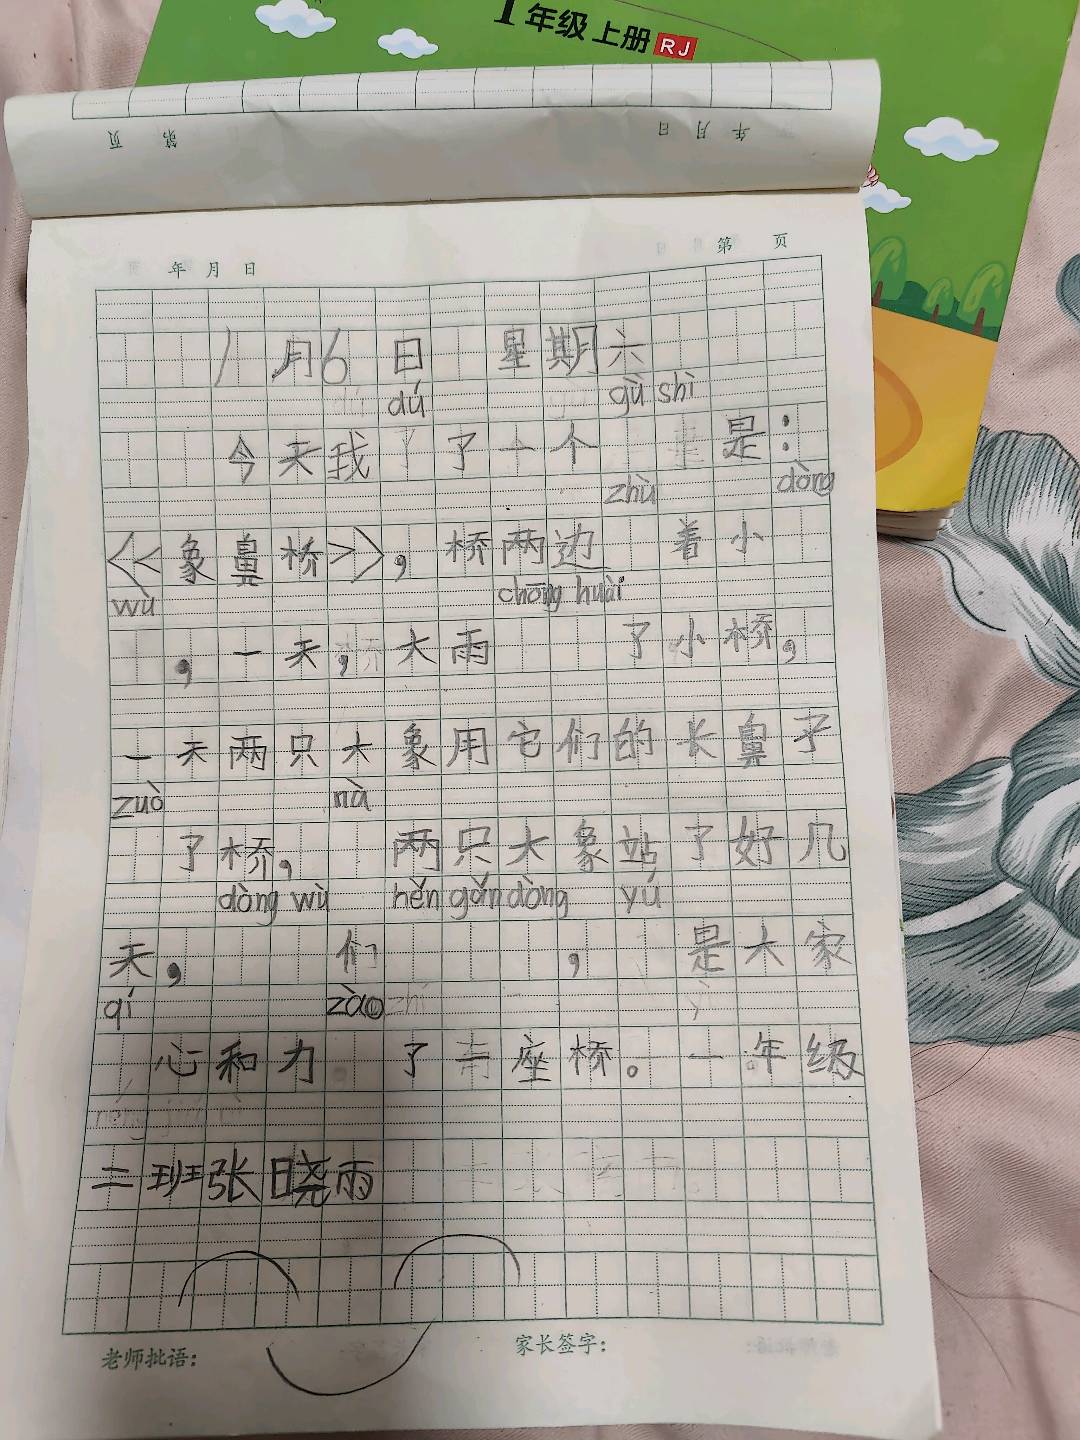 1年级上册 RJ
页 第 日 月 年
年 月 日 第 页
1月6日 星期六
dú gù shì
今天我了了一个 是：
zhù dòng
《象鼻桥》，桥两边 着小
wù chōng huài
，一天，大雨 了小桥，
一天两只大象用它们的长鼻子
zuò nà
了桥， 两只大象站了好几
dòng wù hěn gǎn dòng yú
天， 们 ， 是大家
qí zào
心和力 了 座桥。一年级
二班张晓雨
老师批语： 家长签字：